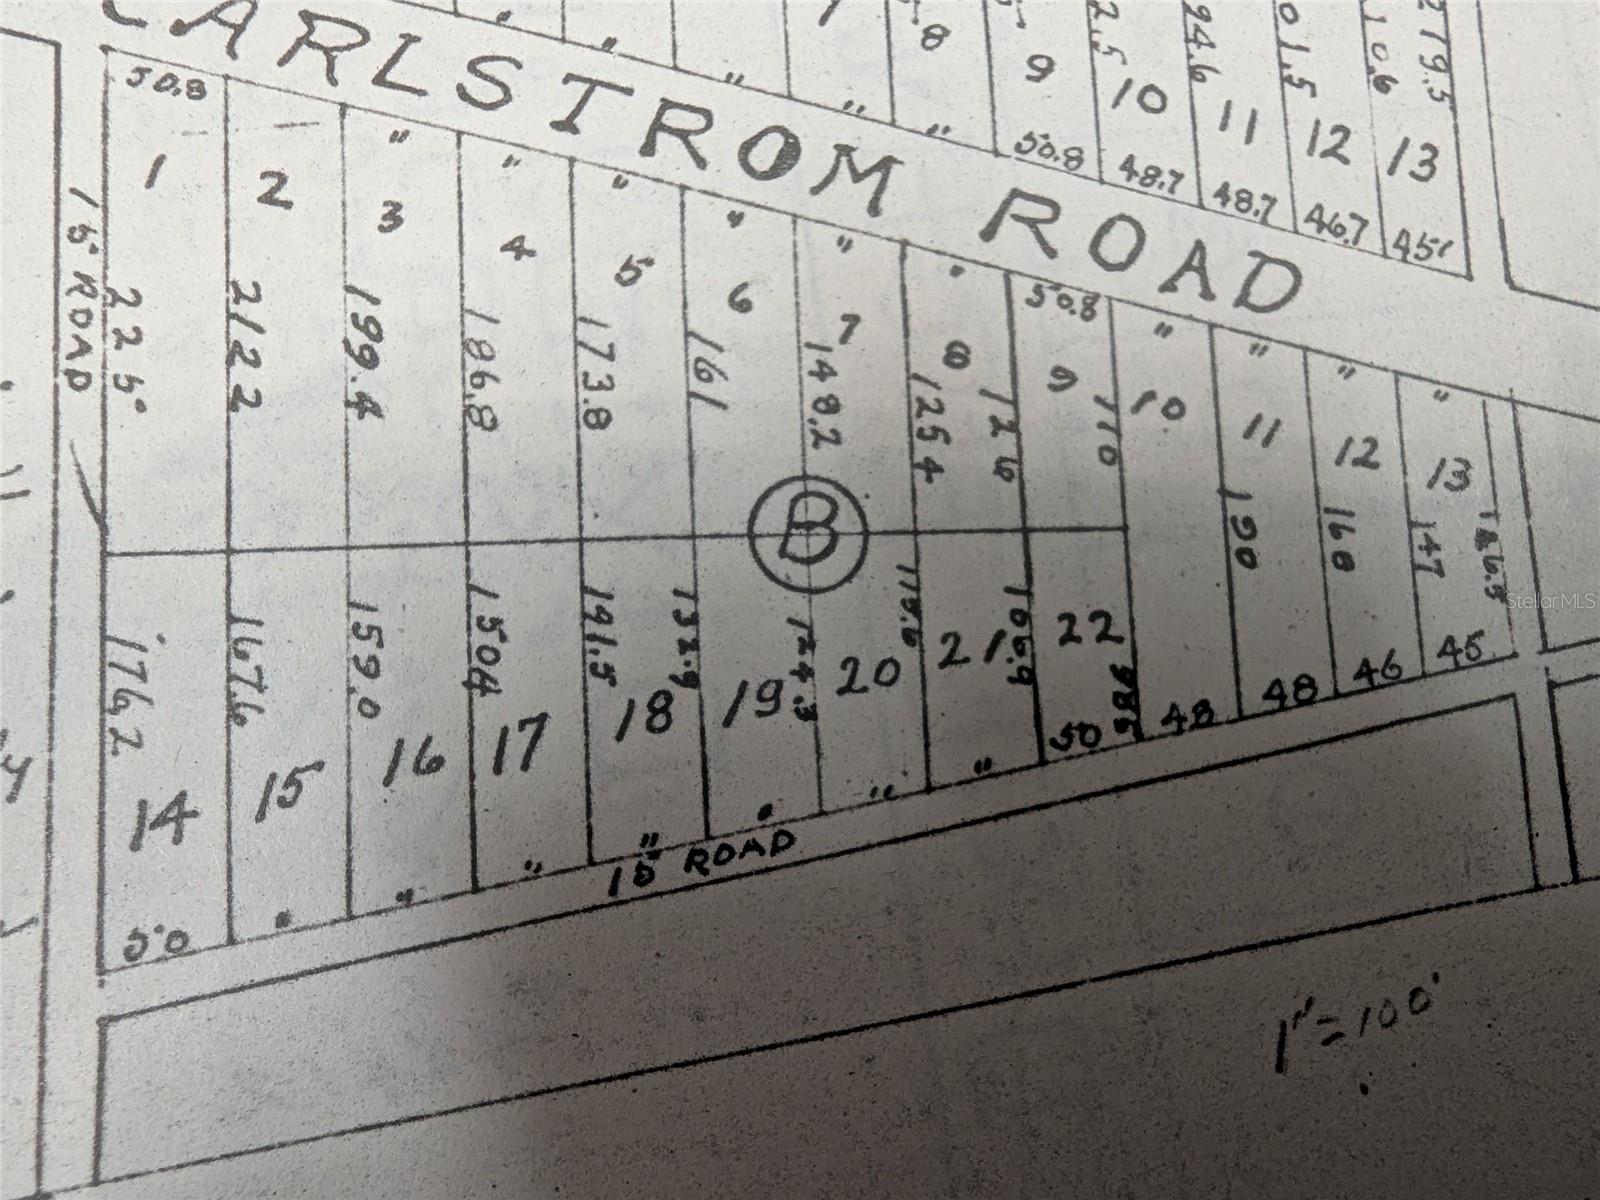 CARLSTROM ROAD
8
9
10
11
12
13
2.5
94.6
01.5
110.6
279.5
50.8
48.7
48.7
46.7
45'
50.8
1
2
3
4
5
6
7
8
9
10
11
12
13
50.8
15' ROAD
225'
2122
199.4
186.8
173.8
161
148.2
1254
126
110
190
160
147
B
1762
167.6
159.0
1504
191.5
132.9
124.3
115.6
106.9
986
14
15
16
17
18
19
20
21
22
50
50
48
48
46
45
15' ROAD
1"=100'
StellarMLS